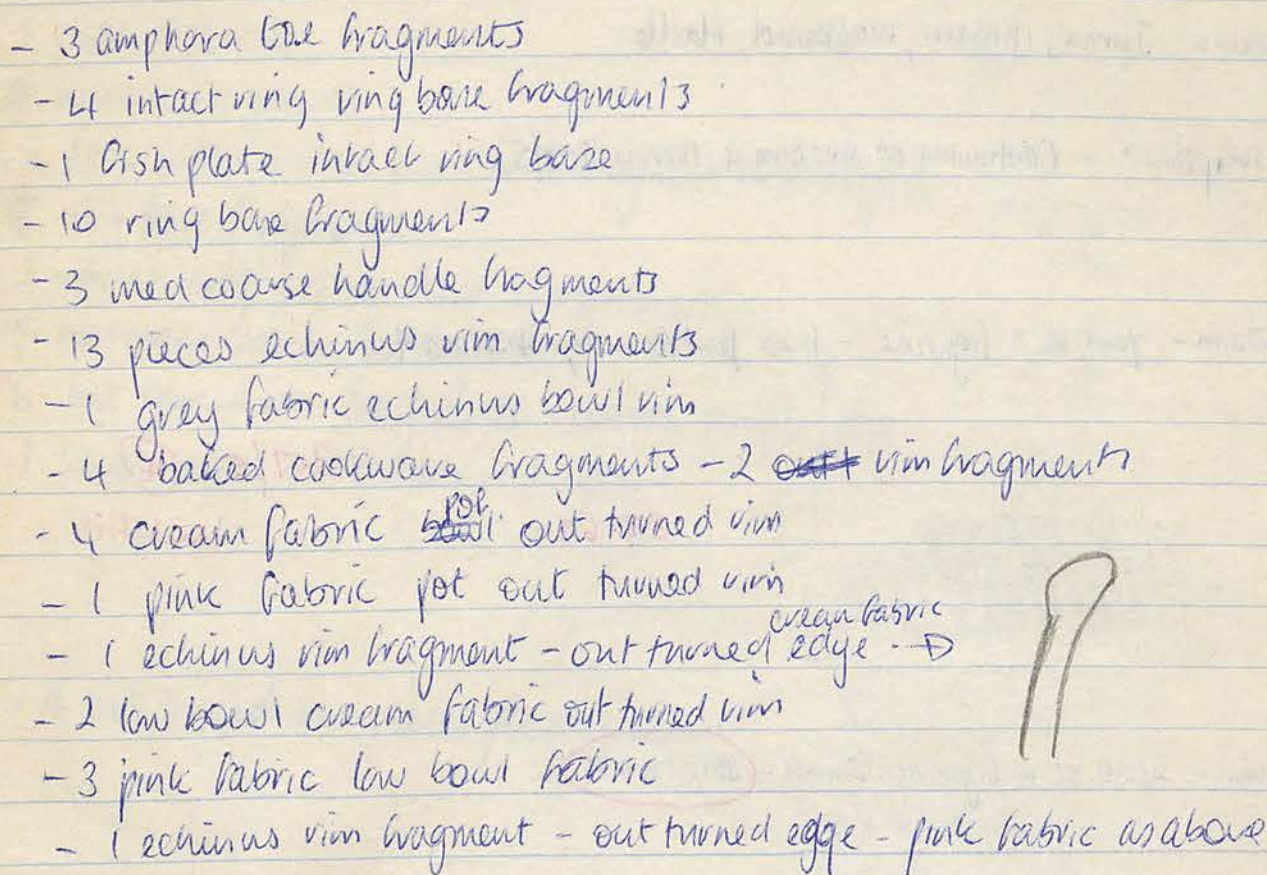 - 3 amphora toe fragments
- 4 intact ring ring base fragments
- 1 fish plate intact ring base
- 10 ring base fragments
- 3 med coarse handle fragments
- 13 pieces echinus rim fragments
- 1 grey fabric echinus bowl rim
- 4 baked cookware fragments - 2 rim fragments
- 4 cream fabric pot out turned rim
- 1 pink fabric pot out turned rim
- 1 echinus rim fragment - out turned edge - cream fabric
- 2 low bowl cream fabric out turned rim
- 3 pink fabric low bowl fabric
- 1 echinus rim fragment - out turned edge - pink fabric as above